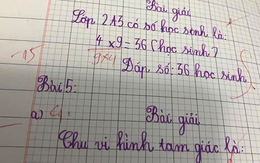 Bài giải
Lớp 2A5 có số học sinh là:
4 x 9 = 36 (học sinh)
9x4
Đáp số: 36 học sinh
Bài 5:
a)
Bài giải
Chu vi hình tam giác là: